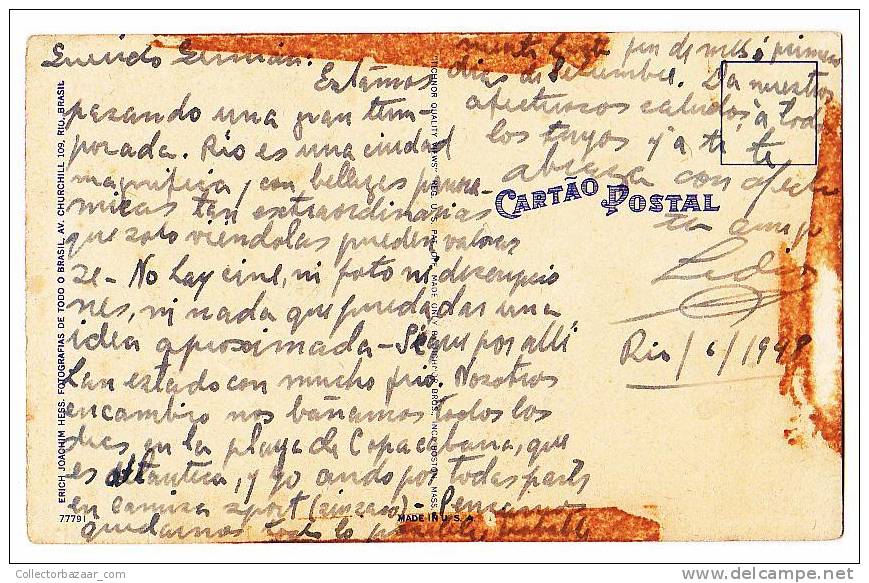 Querido Germán:
Estamos
pasando una gran tem-
porada. Rio es una ciudad
magnifica, con bellezas panora-
micas tan extraordinarias
que solo viéndolas puedes valorar
se - No hay cine, ni foto ni descripcio
nes, ni nada que pueda dar una
idea aproximada - Sé que por allí
han estado con mucho frio. Nosotros
en cambio nos bañamos todos los
dias en la playa de Copacabana, que
es atlantica, y yo ando por todas partes
en camisa sport (sin saco) - Pensamos
quedarnos todo lo posible,
mente hasta fin de mes, ó primeros
dias de Setiembre. Da nuestros
afectuosos saludos, a todos
los tuyos y a ti te
abraza con afecto
tu amigo
Rio / 6 / 1949
CARTÃO POSTAL
ERICH JOACHIM HESS. FOTOGRAFIAS DE TODO O BRASIL. AV. CHURCHILL 109, RIO, BRASIL
77791
MADE IN U.S.A.
Collectorbazaar_com
www.delcampe.net